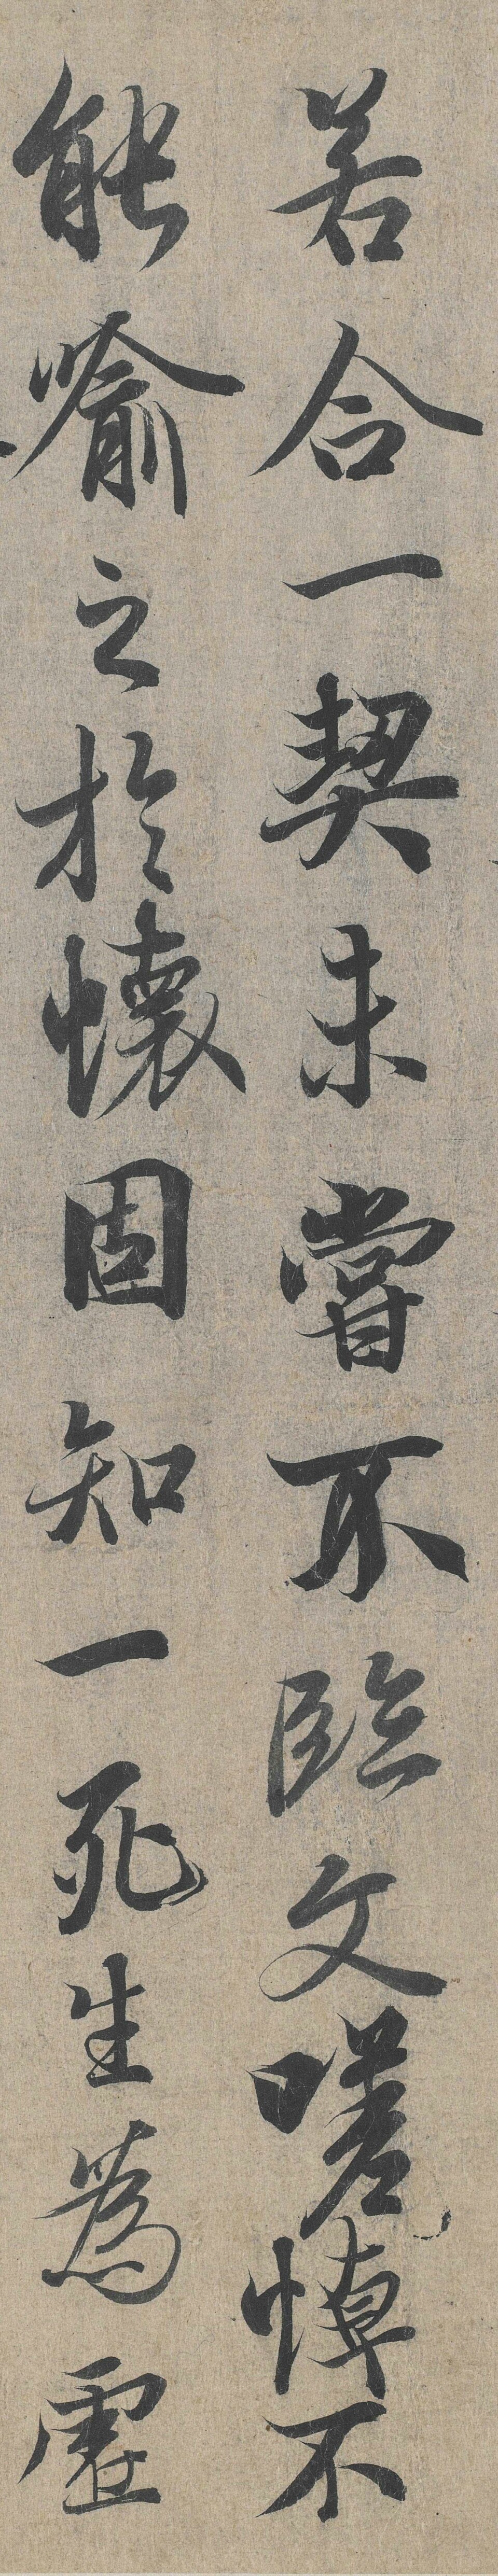 若合一契未嘗不臨文嗟悼不
能喻之於懷固知一死生為虛